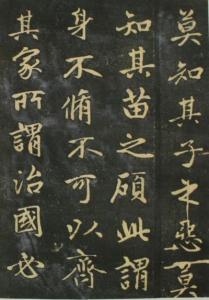 莫知其子之惡莫
知其苗之碩此謂
身不脩不可以齊
其家所謂治國必